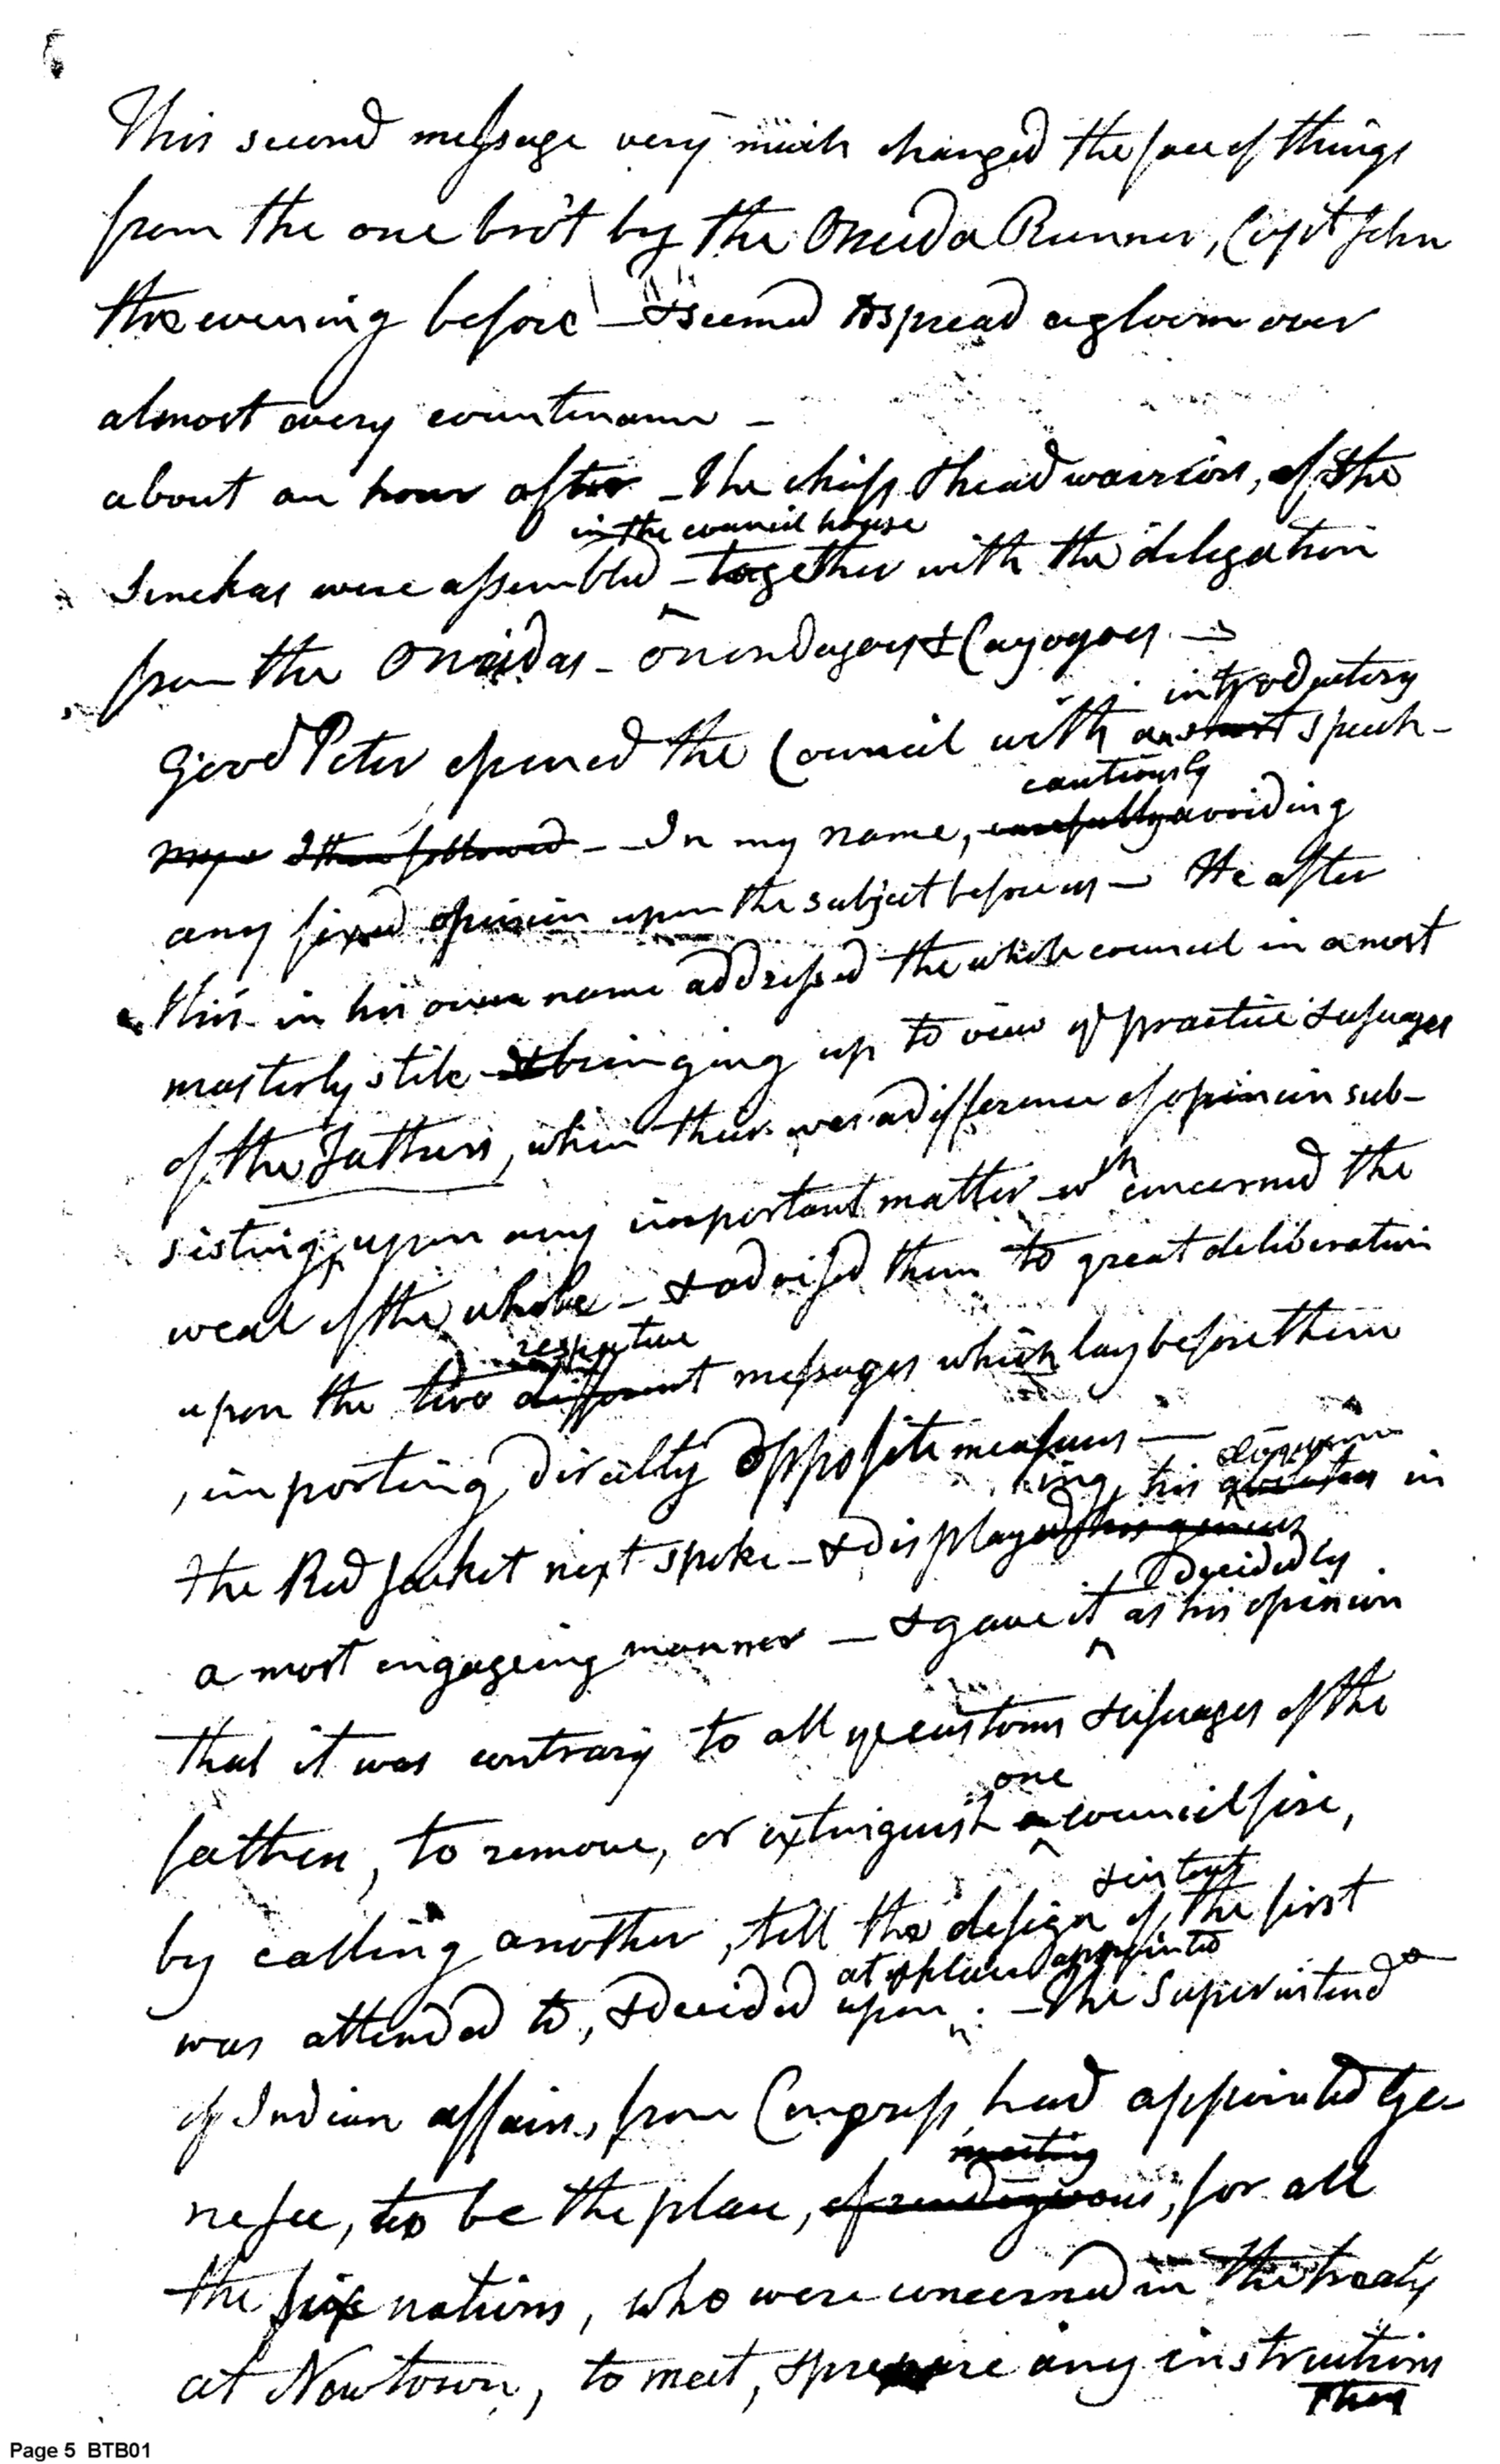 This second message very much changed the face of things
from the one bro't by the Oneida Runner, Capt John
the evening before — & seemed to spread a gloom over
almost every countenance —
about an hour after — The chiefs & head warriors, of the
in the council house
Senekas were assembled — together with the delegation
from the Oneidas — Onondagoes & Cayogoes —
introductory
Good Peter opened the Council with an short speech —
cautiously
I then followed — In my name, carefully avoiding
any fixed opinion upon the subject before us — He after
this in his own name addressed the whole council in a most
masterly stile — & bringing up to view ye practice & usuages
of the Fathers, when their was a difference of opinion sub-
sisting, upon any important matter wh concerned the
weal of the whole — & advised them to great deliberation
respective
upon the two different messages which lay before them
, importing directly opposite measures —
ing, his in
The Red Jacket next spoke — & displayed his genius
Decidedly
a most engageing manner — & gave it as his opinion
that it was contrary to all ye customs & usuages of the
one
fathers, to remove, or extinguish a council fire,
& intent
by calling another, till the design of the first
at ye place appointed
was attended to, & decided upon. — The Superintend
of Indian affairs, from Congress, had appointed Ge-
meeting
nesee, to be the place, of rendezvous, for all
the six nations, who were concerned in the treaty
at Newtown, to meet, & prepare any instructions
they
Page 5 BTB01